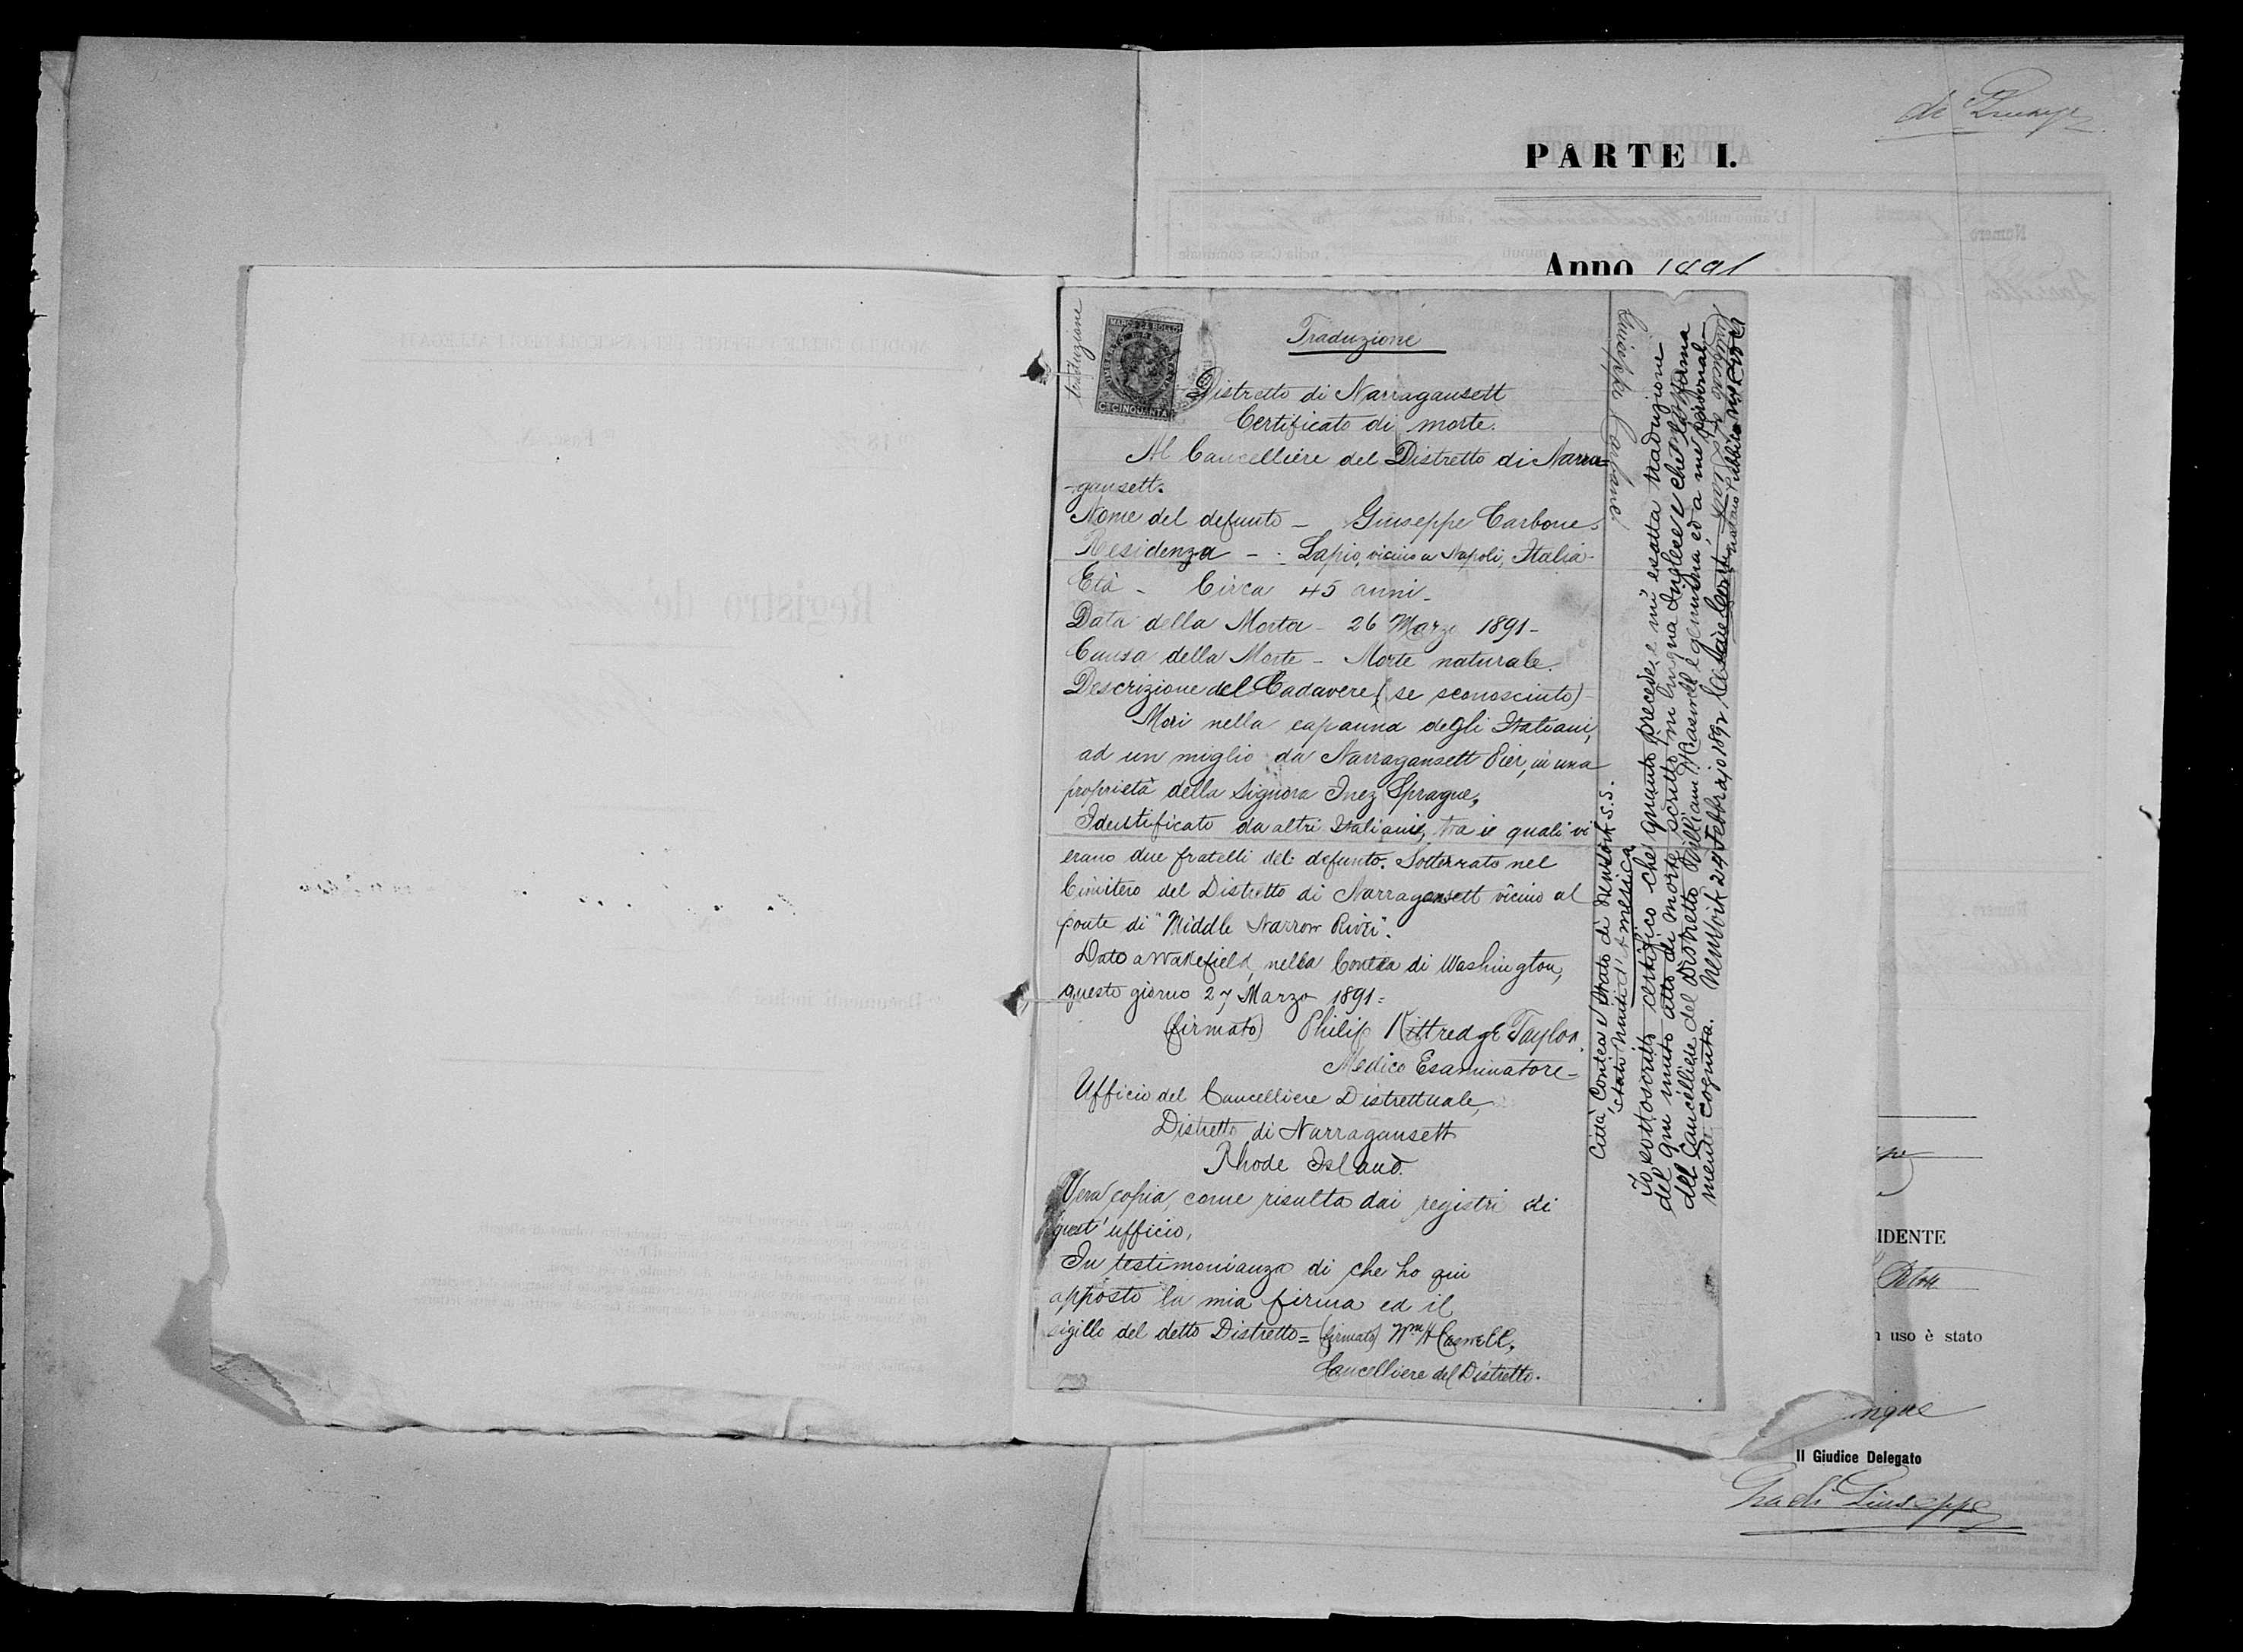 de Giuseppe
PARTE I.
Anno 1891
traduzione
MARCA DA BOLLO
CMI CINQUANTA
Traduzione
Distretto di Narragansett
Certificato di morte.
Al Cancelliere del Distretto di Narra=
-gansett.
Nome del defunto - Giuseppe Carbone.
Residenza - : Lapio, vicino a Napoli, Italia -
Età - Circa 45 anni -
Data della Morte - 26 Marzo 1891 -
Causa della Morte - Morte naturale.
Descrizione del Cadavere (se sconosciuto) -
Morì nella capanna degli Italiani,
ad un miglio da Narragansett Pier, in una
proprietà della Signora Inez Sprague.
Identificato da altri Italiani, tra i quali vi
erano due fratelli del defunto. Sotterrato nel
Cimitero del Distretto di Narragansett vicino al
ponte di "Middle Narrow River".
Dato a Wakefield, nella Contea di Washington,
questo giorno 27 Marzo 1891 =
(firmato) Philip Kittredge Taylor.
Medico Esaminatore -
Ufficio del Cancelliere Distrettuale,
Distretto di Narragansett
Rhode Island.
Vera copia, come risulta dai registri di
quest' ufficio,
In testimonianza di che ho qui
apposto la mia firma ed il
sigillo del detto Distretto = (firmato) Wm H Caswell,
Cancelliere del Distretto.
Giuseppe Carbone
Città, Contea e Stato di New York S.S.
Stati Uniti d'America
Io sottoscritto certifico che quanto precede, è un' esatta traduzione
del qui unito atto di morte scritto in lingua Inglese e che la firma
del Cancelliere del Distretto William H Caswell è genuina ed a me personal-
mente cognita. New York 24 Febbraio 1892
Notaro Pubblico
IDENTE
uso è stato
Il Giudice Delegato
Giuseppe